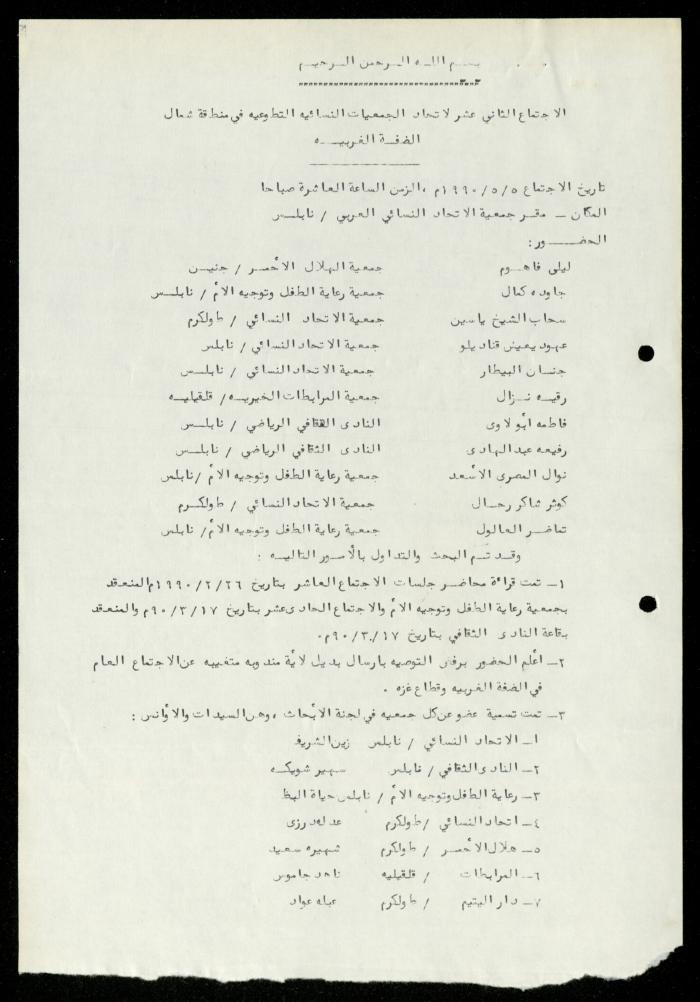 بسم الله الرحمن الرحيم
الاجتماع الثاني عشر لاتحاد الجمعيات النسائيه التطوعيه في منطقة شمال
الضفة الغربيـــه
تاريخ الاجتماع ١٩٩٠/٥/٥م ،الزمن الساعة العاشرة صباحا
المكان - مقر جمعية الاتحاد النسائي العربي / نابلس
الحضــــور:
ليلى فاهوم جمعية الهلال الأحمر / جنين
جاوده كمال جمعية رعاية الطفل وتوجيه الأم / نابلس
سحاب الشيخ ياسين جمعية الاتحاد النسائي / طولكرم
عهود يعيش قناديلو جمعية الاتحاد النسائي / نابلس
جنان البيطار جمعية الاتحاد النسائي / نابلس
رقيه نزال جمعية المرابطات الخيريه / قلقيليه
فاطمه أبو لاوى النادى الثقافي الرياضي / نابلس
رفيعه عبدالهادى النادى الثقافي الرياضي / نابلس
نوال المصرى الأسعد جمعية رعاية الطفل وتوجيه الأم /نابلس
كوثر شاكر رحال جمعية الاتحاد النسائي / طولكرم
تماضر العالول جمعية رعاية الطفل وتوجيه الأم/ نابلس
وقد تم البحث والتداول بالأمور التاليه :
١- تمت قراءة محاضر جلسات الاجتماع العاشر بتاريخ ١٩٩٠/٢/٢٦م المنعقد
بجمعية رعاية الطفل وتوجيه الأم والاجتماع الحادى عشر بتاريخ ٩٠/٣/١٧م والمنعقد
بقاعة النادى الثقافي بتاريخ ٩٠/٣/١٧م.
٢- أعلم الحضور برفض التوصيه بارسال بديل لأية مندوبه متغيبه عن الاجتماع العام
في الضفة الغربيه وقطاع غزه .
٣- تمت تسمية عضو عن كل جمعيه في لجنة الأبحاث ،وهن السيدات والأوانس :
١- الاتحاد النسائي / نابلس زين الشريف
٢- النادى الثقافي / نابلس سهير شويكه
٣- رعاية الطفل وتوجيه الأم / نابلس حياة البظ
٤- اتحاد النسائي / طولكرم عدله رزى
٥- هلال الأحمر / طولكرم شهيره سعيد
٦- المرابطات / قلقيليه ناهد جاموس
٧- دار اليتيم / طولكرم عبله عواد